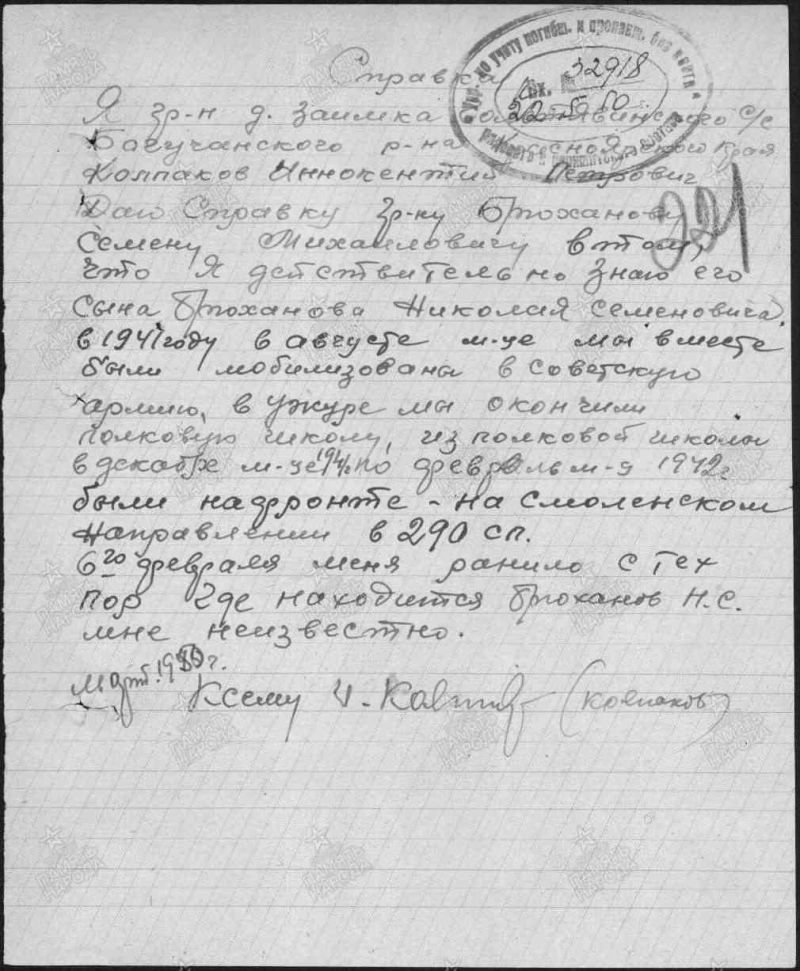 Справка
"Упр. по учету погибш. и пропавш. без вести"
Вх. № 32918
рядового и сержантского состава
Я гр-н д. Заимка с/с
Богучанского р-на Красноярского края
Колпаков Иннокентий Петрович
Даю Справку гр-ну Брюханову
221
Семену Михаиловичу в том,
что Я действительно знаю его
сына Брюханова Николая Семеновича,
в 1941 году в августе м-це мы вместе
были мобилизованы в советскую
армию, в Ужуре мы окончили
полковую школу, из полковой школы
в декабре м-це 1941г. по февраль м-ц 1942г
были на фронте - на Смоленском
направлении в 290 сп.
6го февраля меня ранило с тех
пор где находится Брюханов Н.С.
мне неизвестно.
Март. 1950 г.
К сему И. (колпаков)
ПАМЯТЬ НАРОДА